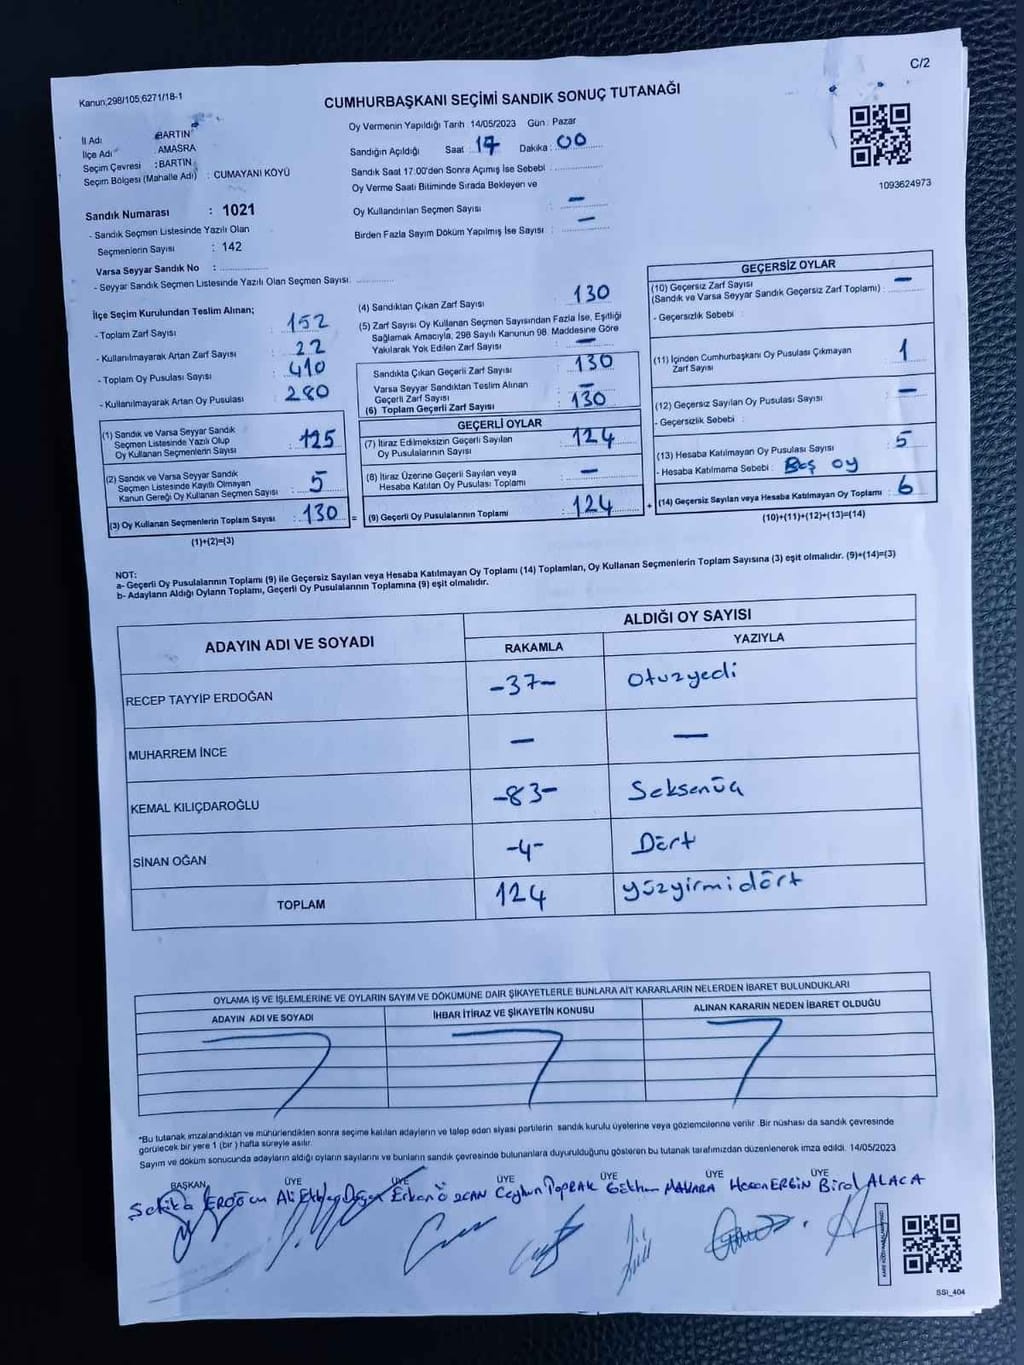 C/2
Kanun,298/105;6271/18-1
CUMHURBAŞKANI SEÇİMİ SANDIK SONUÇ TUTANAĞI
İl Adı : BARTIN
İlçe Adı : AMASRA
Seçim Çevresi : BARTIN
Seçim Bölgesi (Mahalle Adı) : CUMAYANI KÖYÜ
Sandık Numarası : 1021
- Sandık Seçmen Listesinde Yazılı Olan
Seçmenlerin Sayısı : 142
Varsa Seyyar Sandık No :
- Seyyar Sandık Seçmen Listesinde Yazılı Olan Seçmen Sayısı
Oy Vermenin Yapıldığı Tarih : 14/05/2023 Gün : Pazar
Sandığın Açıldığı Saat : 17 Dakika : 00
Sandık Saat 17.00'den Sonra Açımış İse Sebebi
Oy Verme Saati Bitiminde Sırada Bekleyen ve
Oy Kullandırılan Seçmen Sayısı : —
Birden Fazla Sayım Döküm Yapılmış İse Sayısı : —
1093624973
İlçe Seçim Kurulundan Teslim Alınan;
- Toplam Zarf Sayısı : 152
- Kullanılmayarak Artan Zarf Sayısı : 22
- Toplam Oy Pusulası Sayısı : 410
- Kullanılmayarak Artan Oy Pusulası : 280
(1) Sandık ve Varsa Seyyar Sandık
Seçmen Listesinde Yazılı Olup
Oy Kullanan Seçmenlerin Sayısı : 125
(2) Sandık ve Varsa Seyyar Sandık
Seçmen Listesinde Kayıtlı Olmayan
Kanun Gereği Oy Kullanan Seçmen Sayısı : 5
(3) Oy Kullanan Seçmenlerin Toplam Sayısı : 130
(1)+(2)=(3)
(4) Sandıktan Çıkan Zarf Sayısı : 130
(5) Zarf Sayısı Oy Kullanan Seçmen Sayısından Fazla İse, Eşitliği
Sağlamak Amacıyla, 298 Sayılı Kanunun 98. Maddesine Göre
Yakılarak Yok Edilen Zarf Sayısı : —
Sandıkta Çıkan Geçerli Zarf Sayısı : 130
Varsa Seyyar Sandıktan Teslim Alınan
Geçerli Zarf Sayısı : —
(6) Toplam Geçerli Zarf Sayısı : 130
GEÇERLİ OYLAR
(7) İtiraz Edilmeksizin Geçerli Sayılan
Oy Pusulalarının Sayısı : 124
(8) İtiraz Üzerine Geçerli Sayılan veya
Hesaba Katılan Oy Pusulası Toplamı : —
= (9) Geçerli Oy Pusulalarının Toplamı : 124
GEÇERSİZ OYLAR
(10) Geçersiz Zarf Sayısı
(Sandık ve Varsa Seyyar Sandık Geçersiz Zarf Toplamı) : —
- Geçersizlik Sebebi :
(11) İçinden Cumhurbaşkanı Oy Pusulası Çıkmayan
Zarf Sayısı : 1
(12) Geçersiz Sayılan Oy Pusulası Sayısı : —
- Geçersizlik Sebebi :
(13) Hesaba Katılmayan Oy Pusulası Sayısı : 5
- Hesaba Katılmama Sebebi : Boş oy
+ (14) Geçersiz Sayılan veya Hesaba Katılmayan Oy Toplamı : 6
(10)+(11)+(12)+(13)=(14)
NOT:
a- Geçerli Oy Pusulalarının Toplamı (9) ile Geçersiz Sayılan veya Hesaba Katılmayan Oy Toplamı (14) Toplamları, Oy Kullanan Seçmenlerin Toplam Sayısına (3) eşit olmalıdır. (9)+(14)=(3)
b- Adayların Aldığı Oyların Toplamı, Geçerli Oy Pusulalarının Toplamına (9) eşit olmalıdır.
ADAYIN ADI VE SOYADI
ALDIĞI OY SAYISI
RAKAMLA YAZIYLA
RECEP TAYYİP ERDOĞAN -37- Otuzyedi
MUHARREM İNCE — —
KEMAL KILIÇDAROĞLU -83- Seksenüç
SİNAN OĞAN -4- Dört
TOPLAM 124 yüzyirmidört
OYLAMA İŞ VE İŞLEMLERİNE VE OYLARIN SAYIM VE DÖKÜMÜNE DAİR ŞİKAYETLERLE BUNLARA AİT KARARLARIN NELERDEN İBARET BULUNDUKLARI
ADAYIN ADI VE SOYADI İHBAR İTİRAZ VE ŞİKAYETİN KONUSU ALINAN KARARIN NEDEN İBARET OLDUĞU
*Bu tutanak imzalandıktan ve mühürlendikten sonra seçime katılan adayların ve talep eden siyasi partilerin sandık kurulu üyelerine veya gözlemcilerine verilir .Bir nüshası da sandık çevresinde
görülecek bir yere 1 (bir ) hafta süreyle asılır.
Sayım ve döküm sonucunda adayların aldığı oyların sayılarını ve bunların sandık çevresinde bulunanlara duyurulduğunu gösteren bu tutanak tarafımızdan düzenlenerek imza edildi. 14/05/2023
BAŞKAN ÜYE ÜYE ÜYE ÜYE ÜYE ÜYE
ERDOĞAN Erkan ÖZCAN Ceyhun TOPRAK Gökhan MAKARA Hasan ERGİN Birol ALACA
SSI_404